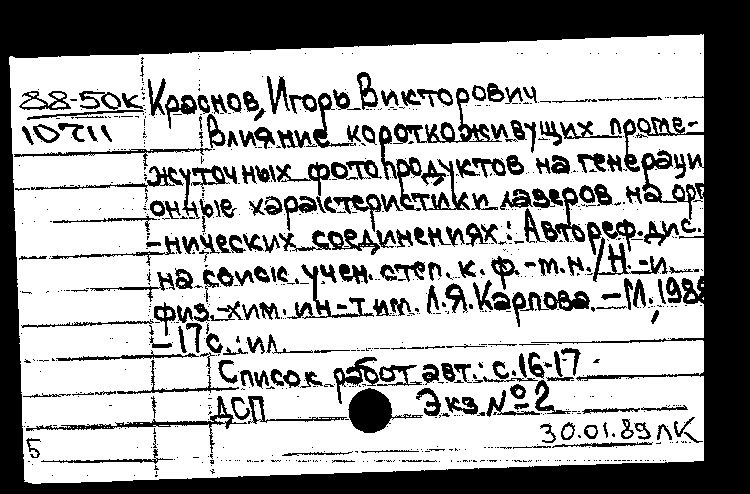 88-50к Краснов, Игорь Викторович
10711 Влияние короткоживущих проме-
жуточных фотопродуктов на генераци
онные характеристики лазеров на орг
-нических соединениях: Автореф. дис.
на соиск. учен. степ. к. ф.-т.н./Н.-и.
физ.-хим. ин-т им. Л.Я.Карпова. – М., 1988
– 17с.: ил.
Список работ авт.: с.16-17.
ДСП Экз №2
30.01.89 ЛК
Б